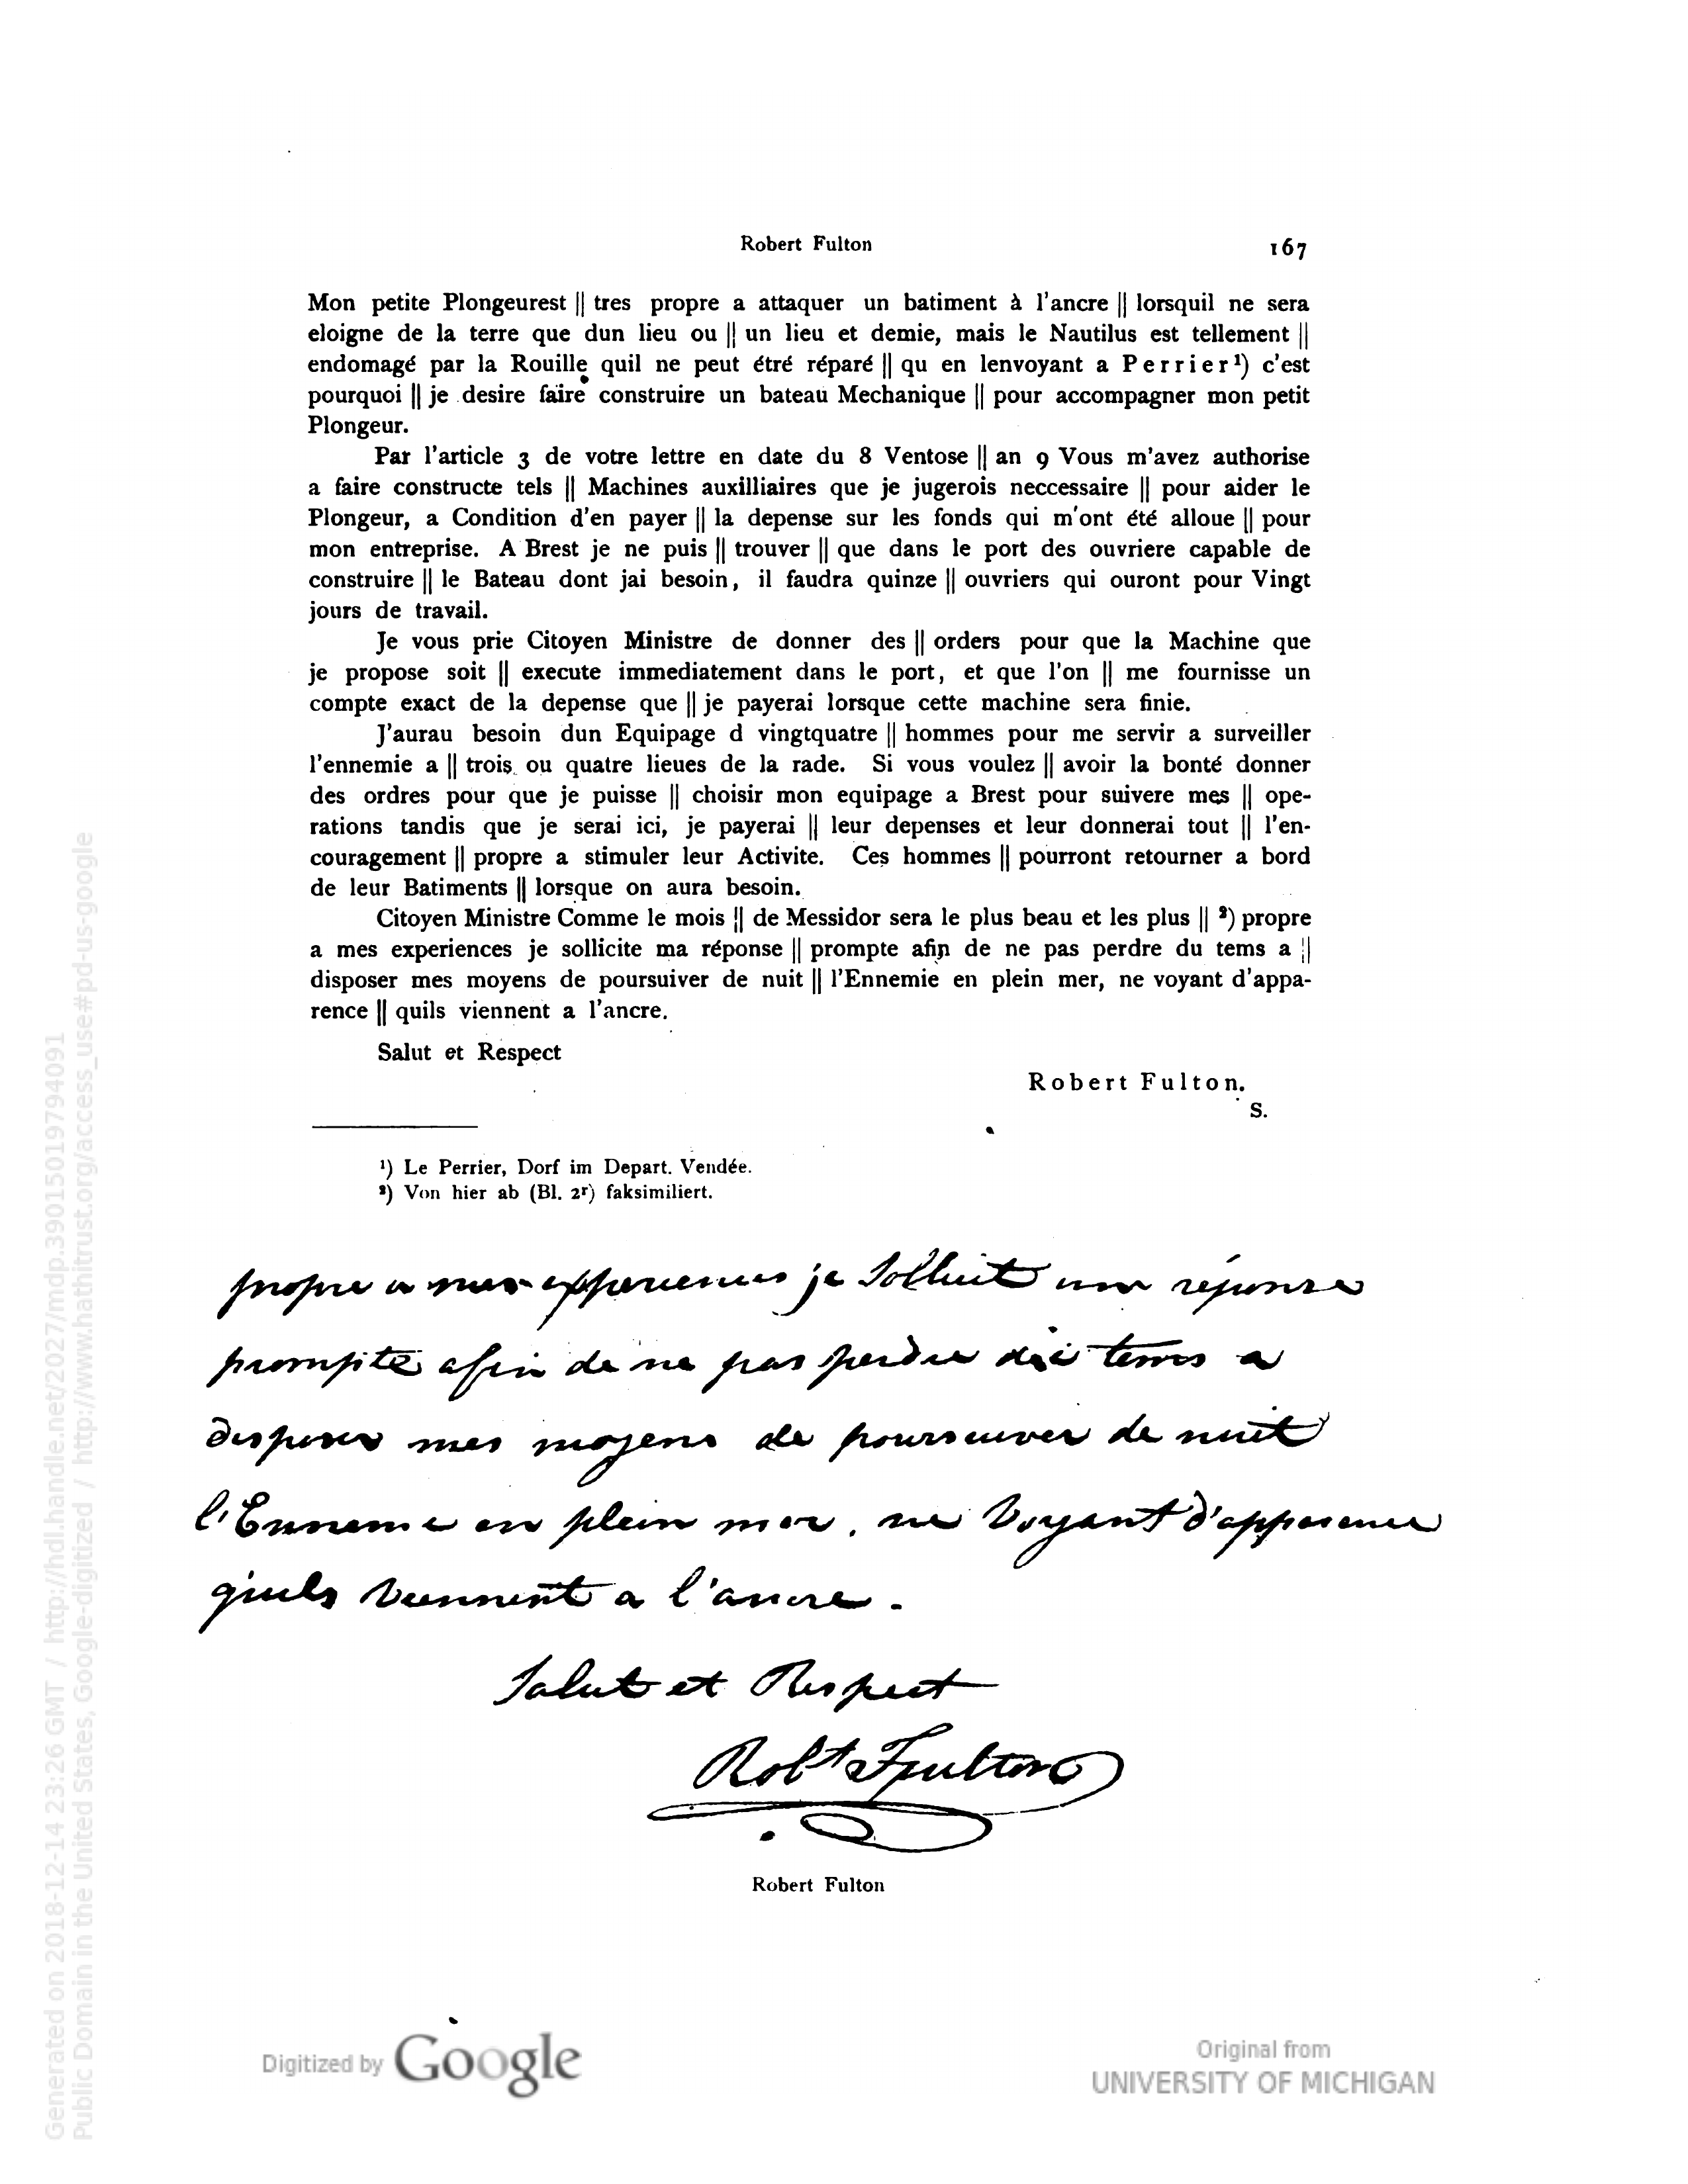 Robert Fulton 167
Mon petite Plongeurest || tres propre a attaquer un batiment à l'ancre || lorsquil ne sera
eloigne de la terre que dun lieu ou || un lieu et demie, mais le Nautilus est tellement ||
endomagé par la Rouille quil ne peut étré réparé || qu en lenvoyant a Perrier¹) c'est
pourquoi || je desire faire construire un bateau Mechanique || pour accompagner mon petit
Plongeur.
Par l'article 3 de votre lettre en date du 8 Ventose || an 9 Vous m'avez authorise
a faire constructe tels || Machines auxilliaires que je jugerois neccessaire || pour aider le
Plongeur, a Condition d'en payer || la depense sur les fonds qui m'ont été alloue || pour
mon entreprise. A Brest je ne puis || trouver || que dans le port des ouvriere capable de
construire || le Bateau dont jai besoin, il faudra quinze || ouvriers qui ouront pour Vingt
jours de travail.
Je vous prie Citoyen Ministre de donner des || orders pour que la Machine que
je propose soit || execute immediatement dans le port, et que l'on || me fournisse un
compte exact de la depense que || je payerai lorsque cette machine sera finie.
J'aurau besoin dun Equipage d vingtquatre || hommes pour me servir a surveiller
l'ennemie a || trois ou quatre lieues de la rade. Si vous voulez || avoir la bonté donner
des ordres pour que je puisse || choisir mon equipage a Brest pour suivere mes || ope-
rations tandis que je serai ici, je payerai || leur depenses et leur donnerai tout || l'en-
couragement || propre a stimuler leur Activite. Ces hommes || pourront retourner a bord
de leur Batiments || lorsque on aura besoin.
Citoyen Ministre Comme le mois || de Messidor sera le plus beau et les plus || ²) propre
a mes experiences je sollicite ma réponse || prompte afin de ne pas perdre du tems a ||
disposer mes moyens de poursuiver de nuit || l'Ennemie en plein mer, ne voyant d'appa-
rence || quils viennent a l'ancre.
Salut et Respect
Robert Fulton.
S.
¹) Le Perrier, Dorf im Depart. Vendée.
²) Von hier ab (Bl. 2r) faksimiliert.
propre a mes experiences je sollicite une réponse
prompte afin de ne pas perdre du tems a
disposer mes moyens de poursuiver de nuit
l'Ennemie en plein mer, ne voyant d'apparence
quils viennent a l'ancre.
Salut et Respect
Robt Fulton
Robert Fulton
Digitized by Google
Original from
UNIVERSITY OF MICHIGAN
Generated on 2018-12-14 23:26 GMT / http://hdl.handle.net/2027/mdp.39015019794091
Public Domain in the United States, Google-digitized / http://www.hathitrust.org/access_use#pd-us-google